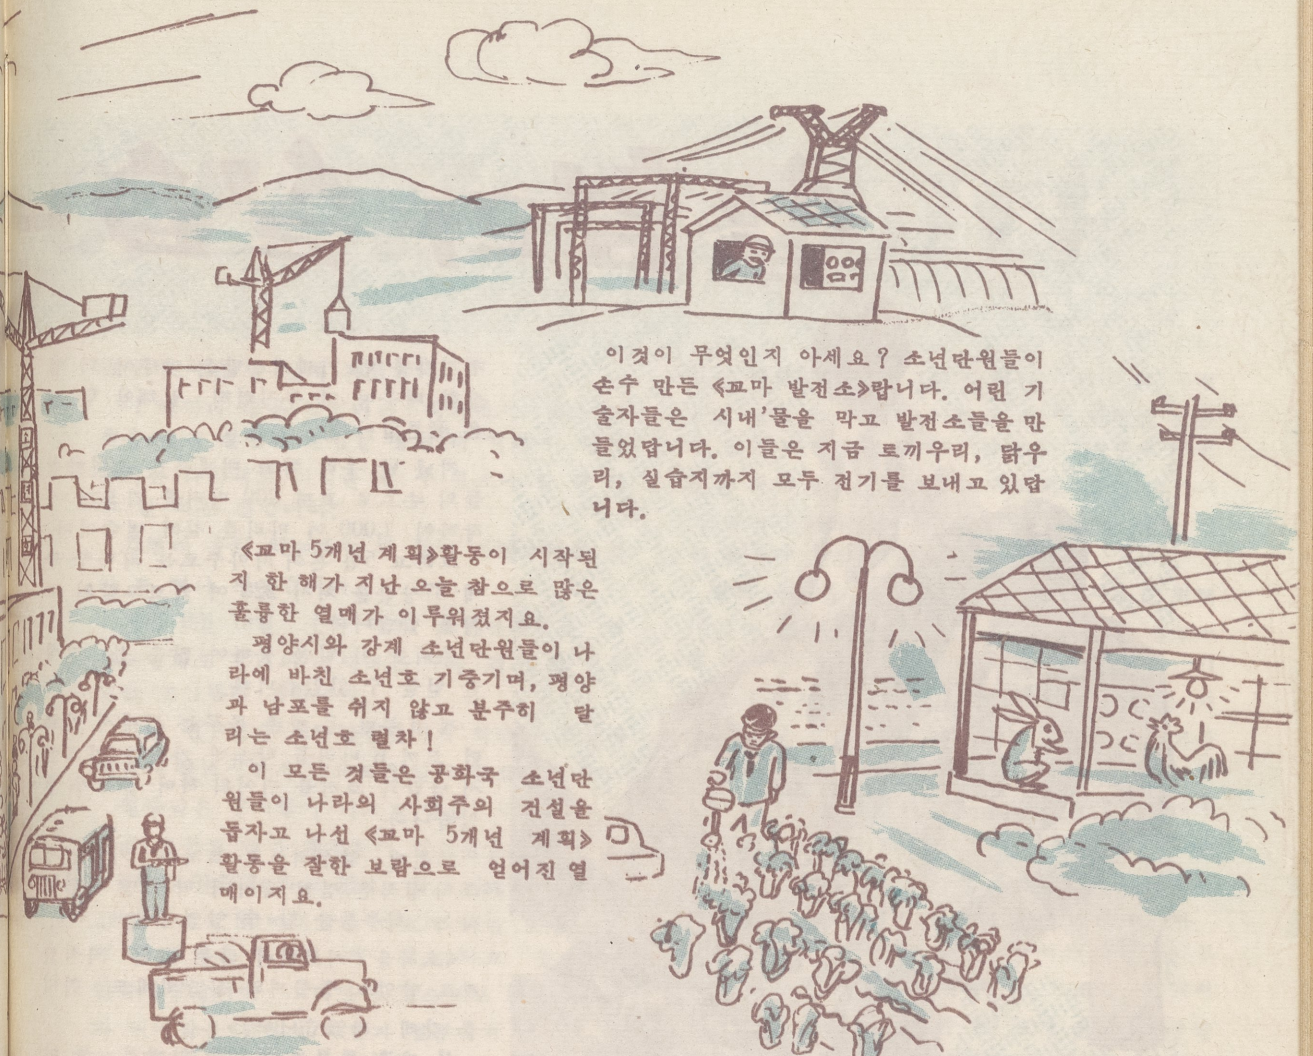 이것이 무엇인지 아세요? 소년단원들이
손수 만든 《꼬마 발전소》랍니다. 어린 기
술자들은 시내'물을 막고 발전소들을 만
들었답니다. 이들은 지금 토끼우리, 닭우
리, 실습지까지 모두 전기를 보내고 있답
니다.
《꼬마 5개년 계획》활동이 시작된
지 한 해가 지난 오늘 참으로 많은
훌륭한 열매가 이루워졌지요.
평양시와 강계 소년단원들이 나
라에 바친 소년호 기중기며, 평양
과 남포를 쉬지 않고 분주히 달
리는 소년호 렬차!
이 모든 것들은 공화국 소년단
원들이 나라의 사회주의 건설을
돕자고 나선 《꼬마 5개년 계획》
활동을 잘한 보람으로 얻어진 열
매이지요.